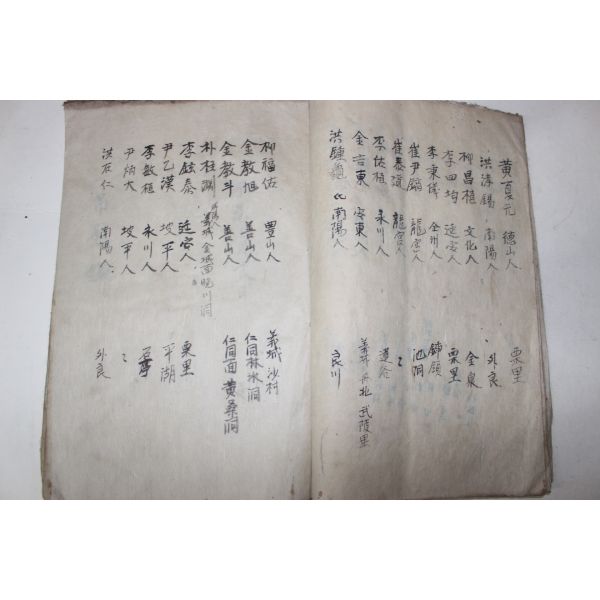 黃夏元 德山人 栗里
洪淳錫 南陽人 外良
柳昌植 文化人 金泉
李四均 延安人 栗里
李秉偉 全州人
崔尹鎬 龍宮人 池洞
崔泰 龍宮人 〻
李佑植 永川人
金吉東 安東人 義城 丹北 武陵里
洪鍾 南陽人 良川
柳福佑 豊山人 義城 沙村
金敎旭 善山人 仁同 林水洞
金敎斗 善山人 仁同面 黃桑洞
朴柱 義城 金城面 川洞
李鉉泰 延安人 栗里
尹乙漢 坡平人 平湖
李敏植 永川人
尹炳大 坡平人 〻
洪在仁 南陽人 外良